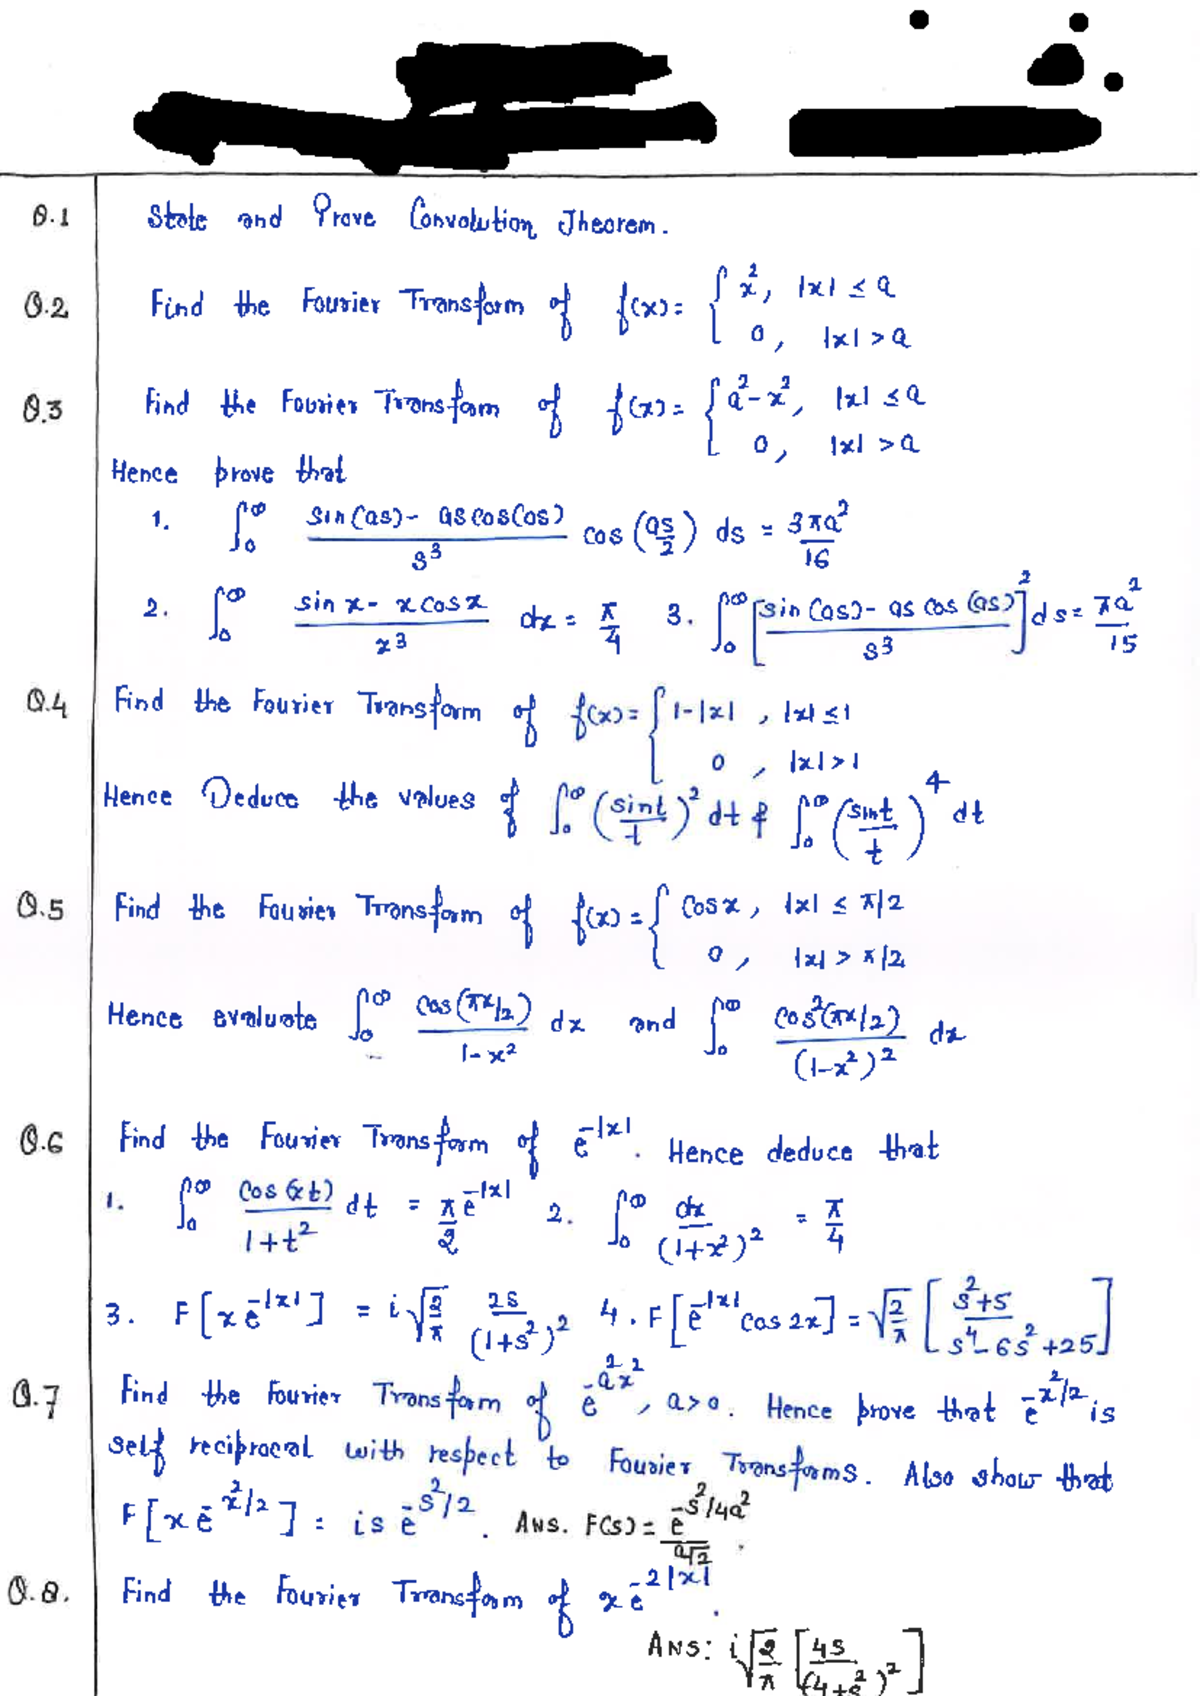 Q.1 State and Prove Convolution Theorem.
Q.2 Find the Fourier Transform of f(x) = { x², |x| ≤ a
0, |x| > a
Q.3 Find the Fourier Transform of f(x) = { a² - x², |x| ≤ a
0, |x| > a
Hence prove that
1. ∫₀^∞ (sin(as) - as cos(as))/s³ cos(as/2) ds = 3πa²/16
2. ∫₀^∞ (sin x - x cos x)/x³ dx = π/4 3. ∫₀^∞ [(sin(as) - as cos(as))/s³]² ds = πa²/15
Q.4 Find the Fourier Transform of f(x) = { 1-|x|, |x| ≤ 1
0, |x| > 1
Hence Deduce the values of ∫₀^∞ (sin t/t)² dt & ∫₀^∞ (sin t/t)⁴ dt
Q.5 Find the Fourier Transform of f(x) = { cos x, |x| ≤ π/2
0, |x| > π/2
Hence evaluate ∫₀^∞ cos(πx/2)/(1-x²) dx and ∫₀^∞ cos²(πx/2)/(1-x²)² dx
Q.6 Find the Fourier Transform of e^{-|x|}. Hence deduce that
1. ∫₀^∞ cos(xt)/(1+t²) dt = π/2 e^{-|x|} 2. ∫₀^∞ dx/(1+x²)² = π/4
3. F[x e^{-|x|}] = i√(2/π) 2s/(1+s²)² 4. F[e^{-|x|} cos 2x] = √(2/π) [(s²+5)/(s⁴-6s²+25)]
Q.7 Find the Fourier Transform of e^{-a²x²}, a>0. Hence prove that e^{-x²/2} is
self reciprocal with respect to Fourier Transforms. Also show that
F[x e^{-x²/2}] = is e^{-s²/2}. Ans. F(s) = e^{-s²/4a²}/(a√2).
Q.8. Find the Fourier Transform of x e^{-2|x|}.
Ans: i√(2/π) [4s/(4+s²)²]